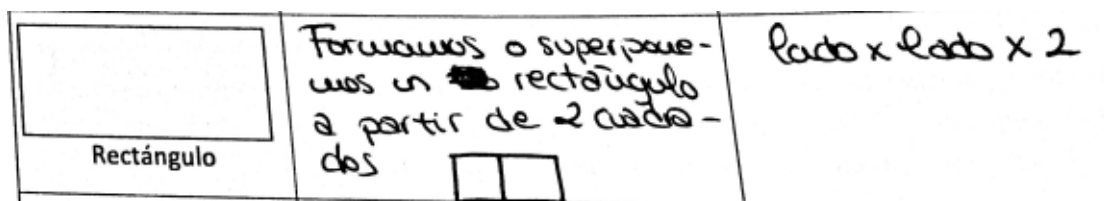 Rectángulo
Formamos o superpone-
mos un rectángulo
a partir de 2 cuadra-
dos
lado x lado x 2